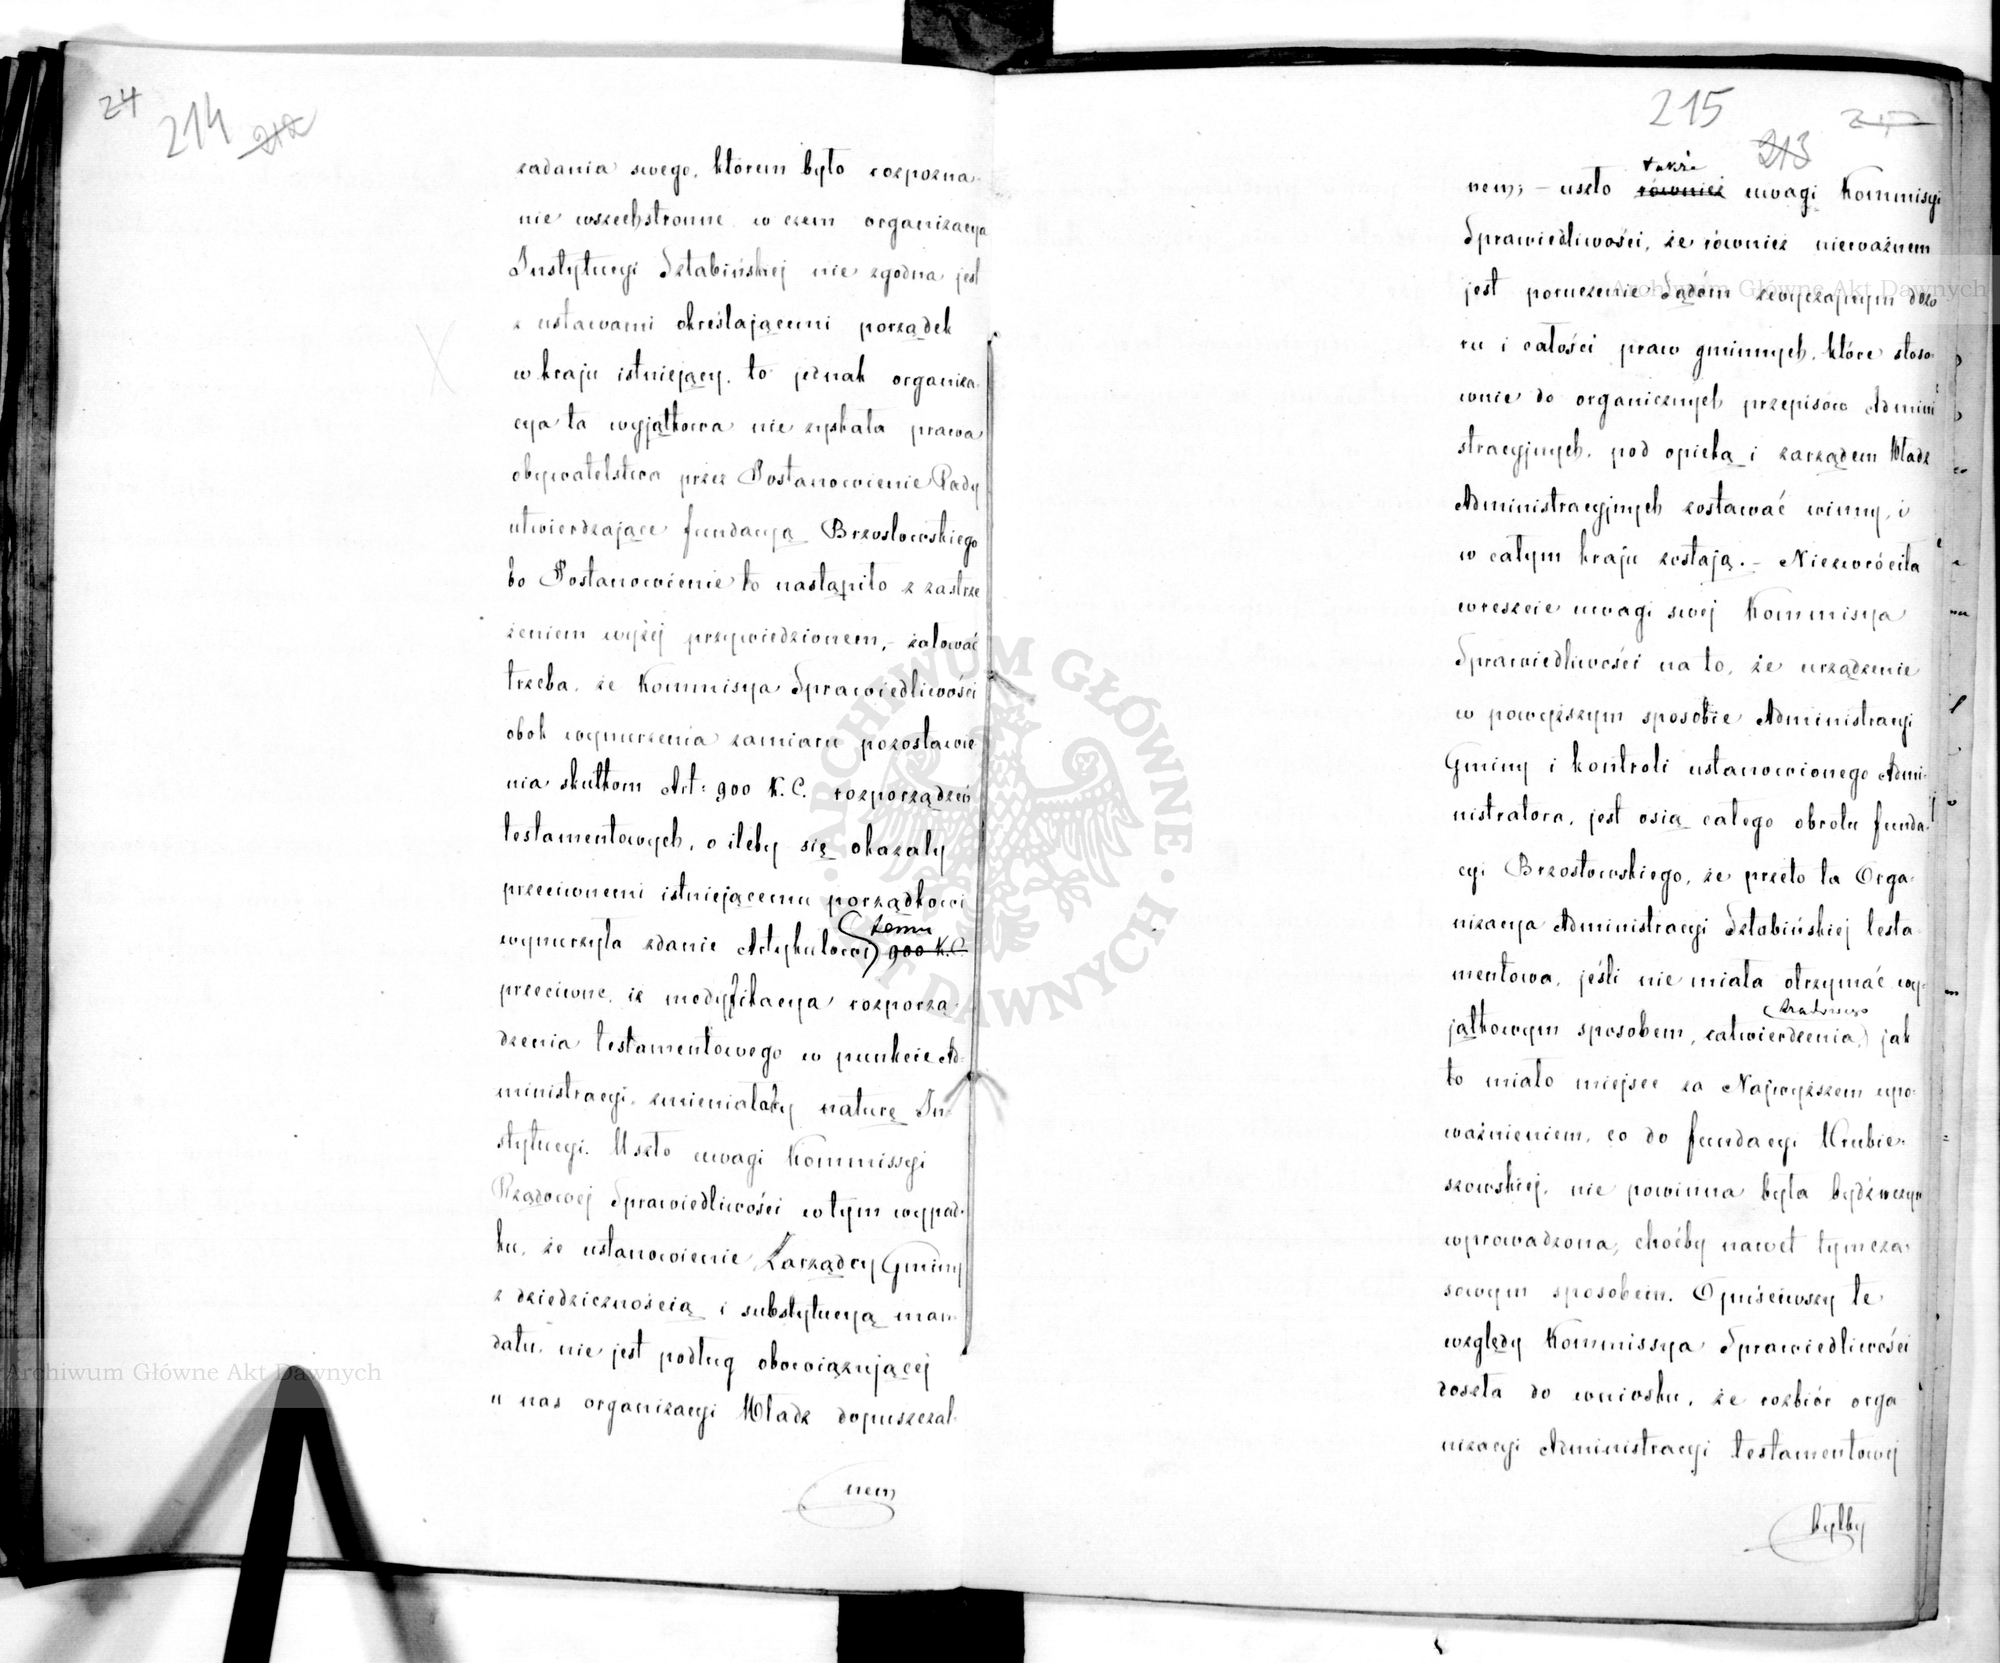 24
214
212
zadania swego, którem było rozpozna-
nie wszechstronne w czem organizacya
Instytucyi Sztabińskiej nie zgodna jest
z ustawami określającemi porządek
w kraju istniejący, to jednak organiza-
cya ta wyjątkowa nie zyskała prawa
obywatelstwa przez Postanowienie Rady
utwierdzające fundacyą Brzostowskiego
bo Postanowienie to nastąpiło z zastrze
żeniem wyżej przywiedzionem, – żałować
trzeba, że Kommisya Sprawiedliwości
obok wynurzenia zamiaru pozostawie
nia skutkom Art: 900 K. C. rozporządzeń
testamentowych, o ileby się okazały
przeciwnemi istniejącemu porządkowi
temu
wynurzyła zdanie Artykułowi 900 K.C.
przeciwne, iż modyfikacya rozporzą-
dzenia testamentowego w punkcie Ad-
ministracyi, zmieniałaby naturę In-
stytucyi. Uszło uwagi Kommissyi
Rządowej Sprawiedliwości w tym wypad-
ku, że ustanowienie Zarządcy Gminy
z dziedzicznością i substytucyą man-
datu, nie jest podług obowiązującej
u nas organizacyi Władz dopuszczal-
nem
215
213
także
nem; – uszło również uwagi Kommisyi
Sprawiedliwości, że również nieważnem
jest poruczenie Sądom zwyczajnym dozo
ru i całości praw gminnych, które stoso
wnie do organicznych przepisów Admini
stracyjnych, pod opieką i zarządem Władz
Administracyjnych zostawać winny, i
w całym kraju zostają. – Niezwróciła
wreszcie uwagi swej Kommisya
Sprawiedliwości na to, że urządzenie
w powyższym sposobie Administracyi
Gminy i kontroli ustanowionego Admi-
nistratora, jest osią całego obrotu funda-
cyi Brzostowskiego, że przeto ta Orga-
nizacya Administracyi Sztabińskiej testa-
mentowa, jeśli nie miała otrzymać wy-
jątkowym sposobem, zatwierdzenia, jak
to miało miejsce za Najwyższem upo-
ważnieniem, co do fundacyi Hrubie-
szowskiej, nie powinna była bydź w czyn
wprowadzona, choćby nawet tymcza-
sowym sposobem. Opuściwszy te
względy Kommissya Sprawiedliwości
doszła do wniosku, że rozbiór orga
nizacyi Administracyi testamentowej
byłby
ARCHIWUM GŁÓWNE AKT DAWNYCH
Archiwum Główne Akt Dawnych
Archiwum Główne Akt Dawnych